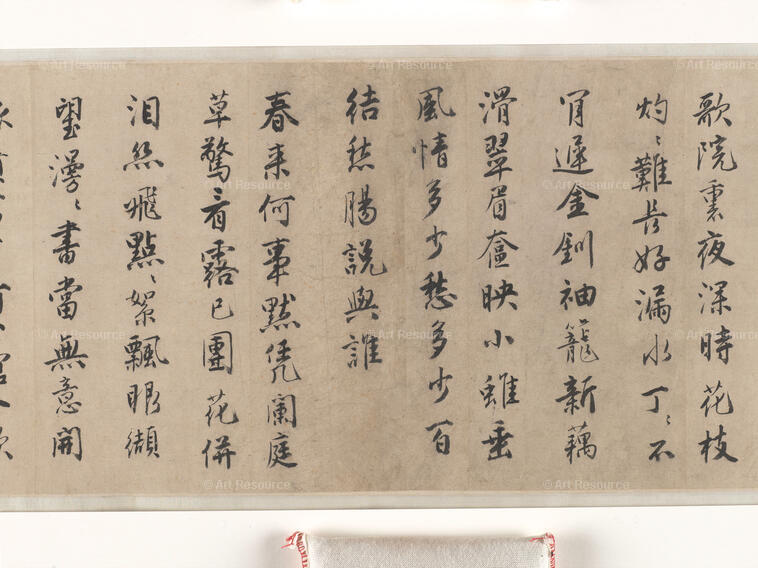 歌院裏夜深時花枝
灼〻難長好漏水丁〻不
肯遲金釧袖籠新藕
滑翠眉奩映小蟬垂
風情多少愁多少百
結愁腸說與誰
春來何事默凭闌庭
草驚看露已團花併
淚絲飛點〻絮飄眼纈
望漫〻書當無意開
© Art Resource